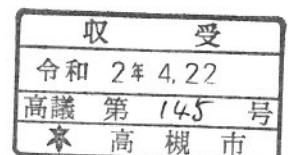 収受
令和 2年 4.22
高議 第 145 号
高槻市